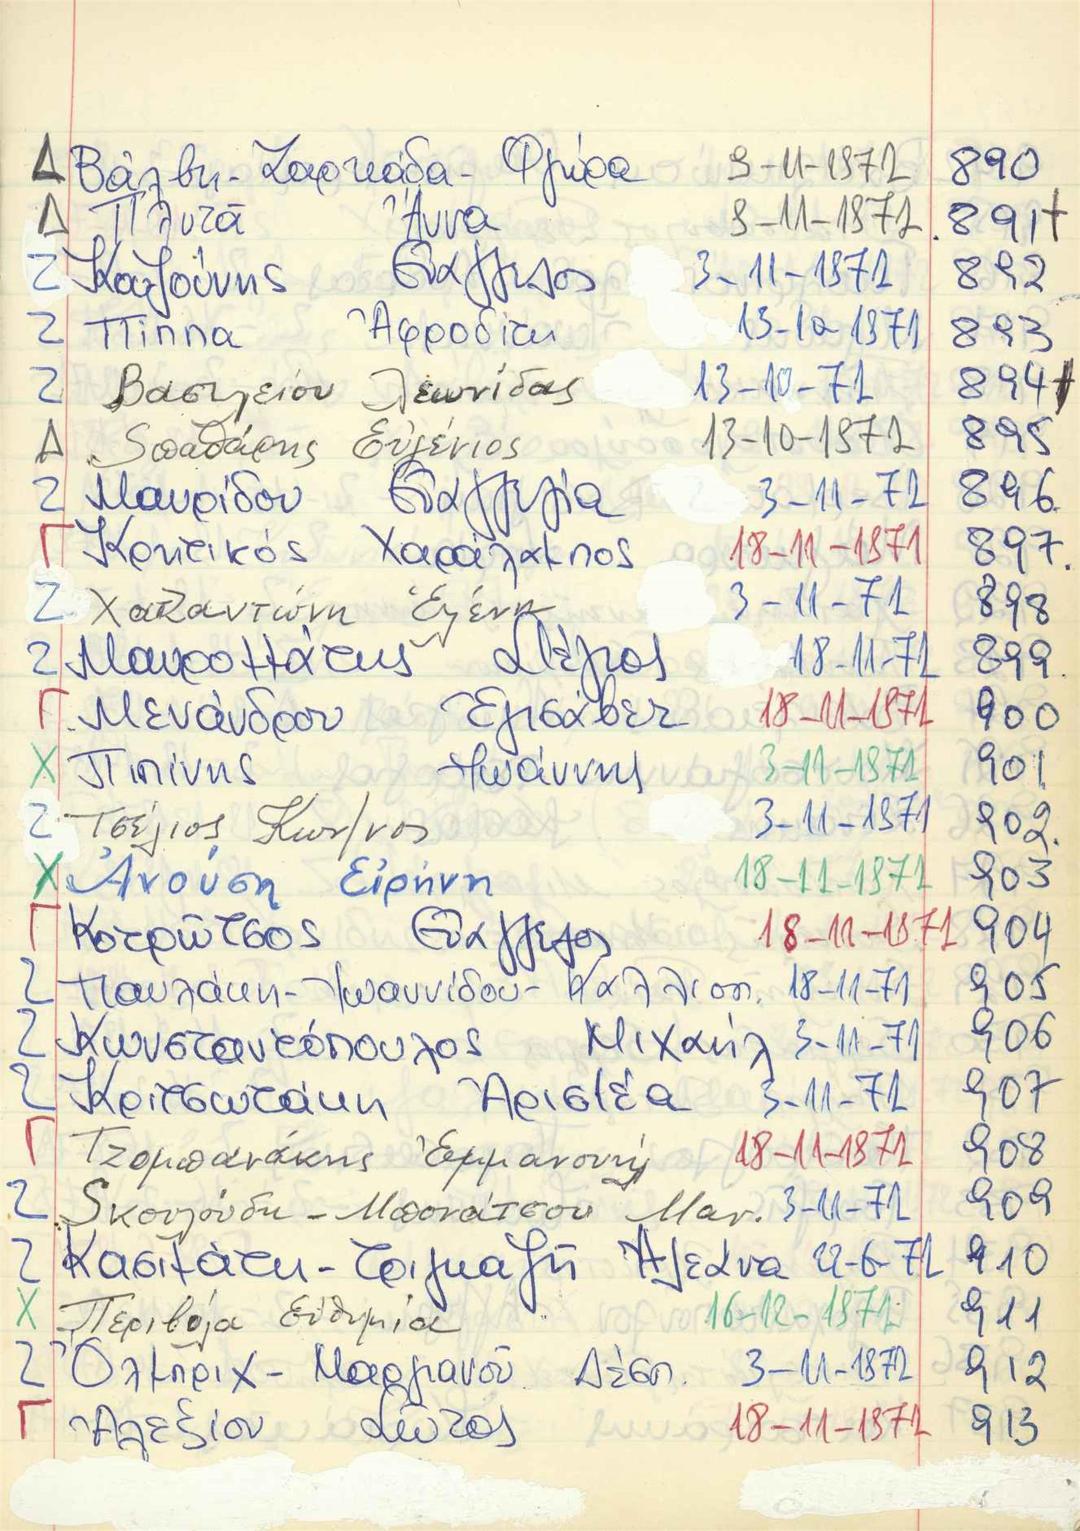 Δ Βάλβη - Ζαρκάδα - Φλώρα 9-11-1971 890
Δ Πλυτά Άννα 9-11-1971 891 +
Ζ Καζούνης Ευάγγελος 3-11-1971 892
Ζ Πίππα Αφροδίτη 13-10 1971 893
Ζ Βασιλείου Λεωνίδας 13-10-71 894 +
Δ Σπαθάρης Ευγένιος 13-10-1971 895
Ζ Μαυρίδου Ευαγγελία 3-11-71 896
Γ Κρητικός Χαράλαμπος 18-11-1971 897
Ζ Χατζαντώνη Ελένη 3-11-71 898
Ζ Μαυρομμάτης Στέλιος 18-11-71 899
Γ Μενάνδρου Ελισάβετ 18-11-1971 900
Χ Πιπίνης Ιωάννης 3-11-1971 901
Ζ Τσέλιος Κων/νος 3-11-1971 902
Χ Ανούση Ειρήνη 18-11-1971 903
Γ Κοτρώτσος Ευάγγελος 18-11-1971 904
Ζ Παυλάκη - Ιωαννίδου - Καλλιοπ. 18-11-71 905
Ζ Κωνσταντόπουλος Μιχαήλ 3-11-71 906
Ζ Κριτσωτάκη Αριστέα 3-11-71 907
Γ Τζομπανάκης Εμμανουήλ 18-11-1971 908
Ζ Σκουλούδη - Μπονάτσου Μαν. 3-11-71 909
Ζ Κασιμάτη - Τριγκαζή 22-6-71 910
Χ Περιβόλα Ευθυμία 16-12-1971 911
Ζ Όλμπριχ - Μαργιανού Δέσπ. 3-11-1971 912
Γ Αλεξίου 18-11-1971 913